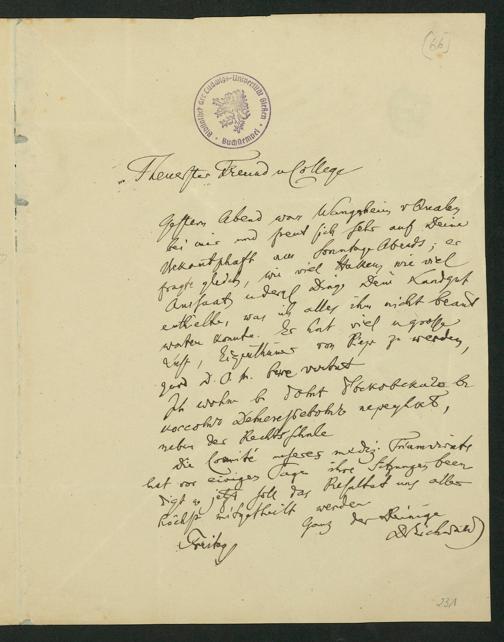 (66)
Bibliothek der Ludwigs-Universität Gießen
Buchstempel
Theuerster Freund u College
Gestern Abend war Wangenheim v Qualen
bei mir und freut sich sehr auf Deine
Bekantschaft am Sonntage Abends; er
fragte gleich, wie viel Haken, wie viel
Aussaat u dergl Dinge Dein Landgut
enthielte, was ich alles ihm nicht beant
worten konnte. Er hat viel u grosse
Lust, Eigenthümer von Piep zu werden,
quod D. O. M. bene vertat
Ich wohne
neben der Rechtsschule
Die Comité unseres mediz. Triumvirats
hat vor einigen Tage ihre Sitzungen been
digt u jetzt soll das Resultat uns aller
höchst mitgetheilt werden
Ganz der Deinige
Freitag
DrEichwald
231